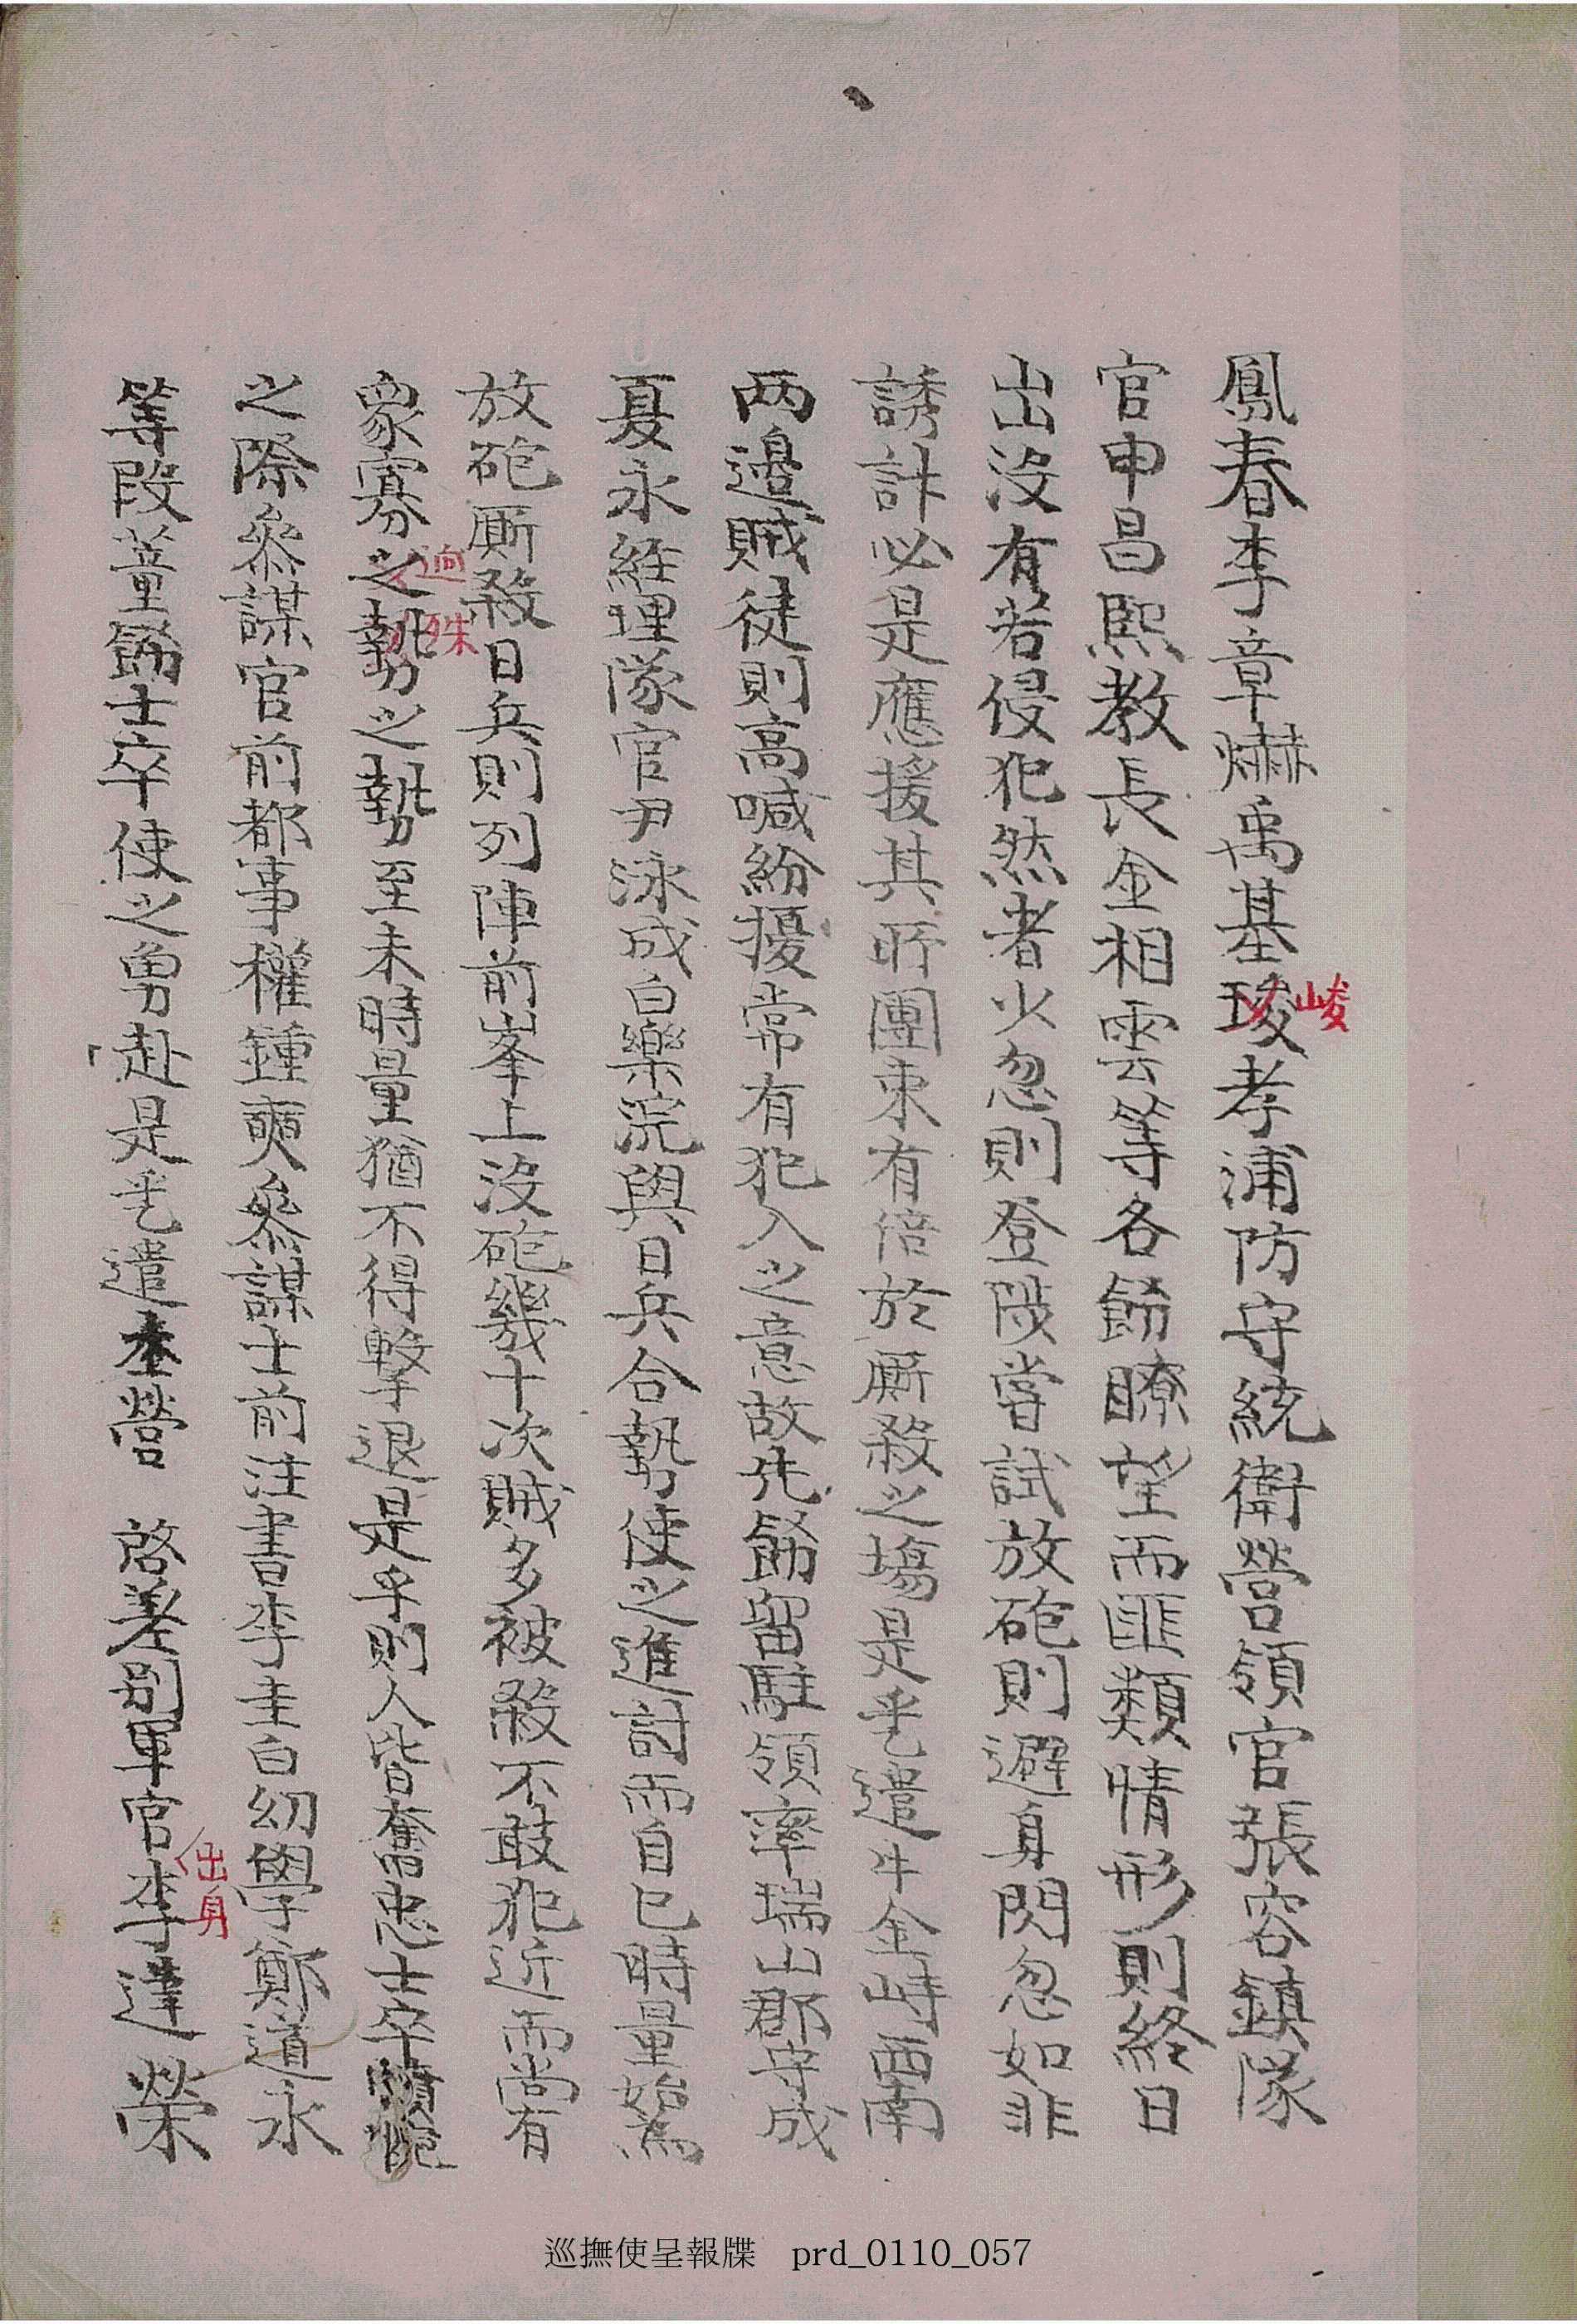 鳳春李章爀禹基琙峻孝浦防守統衛營領官張容鎭隊
官申昌熙敎長金相雲等各飭瞭望而匪類情形則終日
出沒有若侵犯然者火忽則登陟嘗試放砲則避身閃忽如非
誘計必是應援其所團束有倍於厮殺之塲是乎乞遣牛金峙西南
两邉賊徒則高喊紛擾常有犯入之意故先飭留駐領率瑞山郡守成
夏永經理隊官尹泳成白樂浣與日兵合勢使之進討而自巳時量始爲
放砲厮殺日兵則列陣前峯上沒砲幾十次賊多被殺不敢犯近而尙有
衆寡之勢逈殊之勢至未時量猶不得擊退是乎則人皆奮忠士卒憤惋
之際叅謀官前都事權鍾奭叅謀士前注書李圭白幼學鄭道永
等段董飭士卒使之勇赴是乎乞遣本營 啓差別軍官出身李達榮
巡撫使呈報牒 prd_0110_057